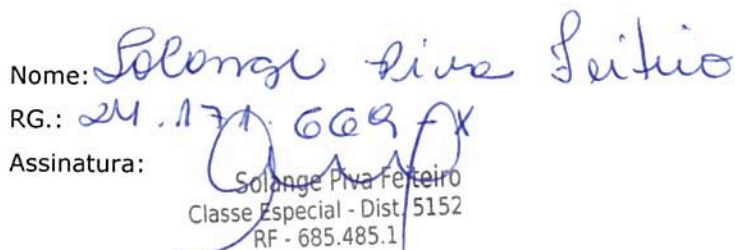 Nome: Solange Piva Feiteiro
RG.: 24.171.669-X
Assinatura:
Solange Piva Feiteiro
Classe Especial - Dist. 5152
RF - 685.485.1